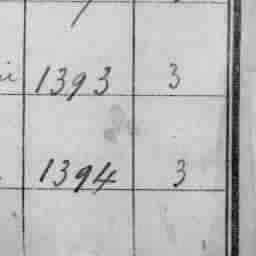 1393 3
1394 3